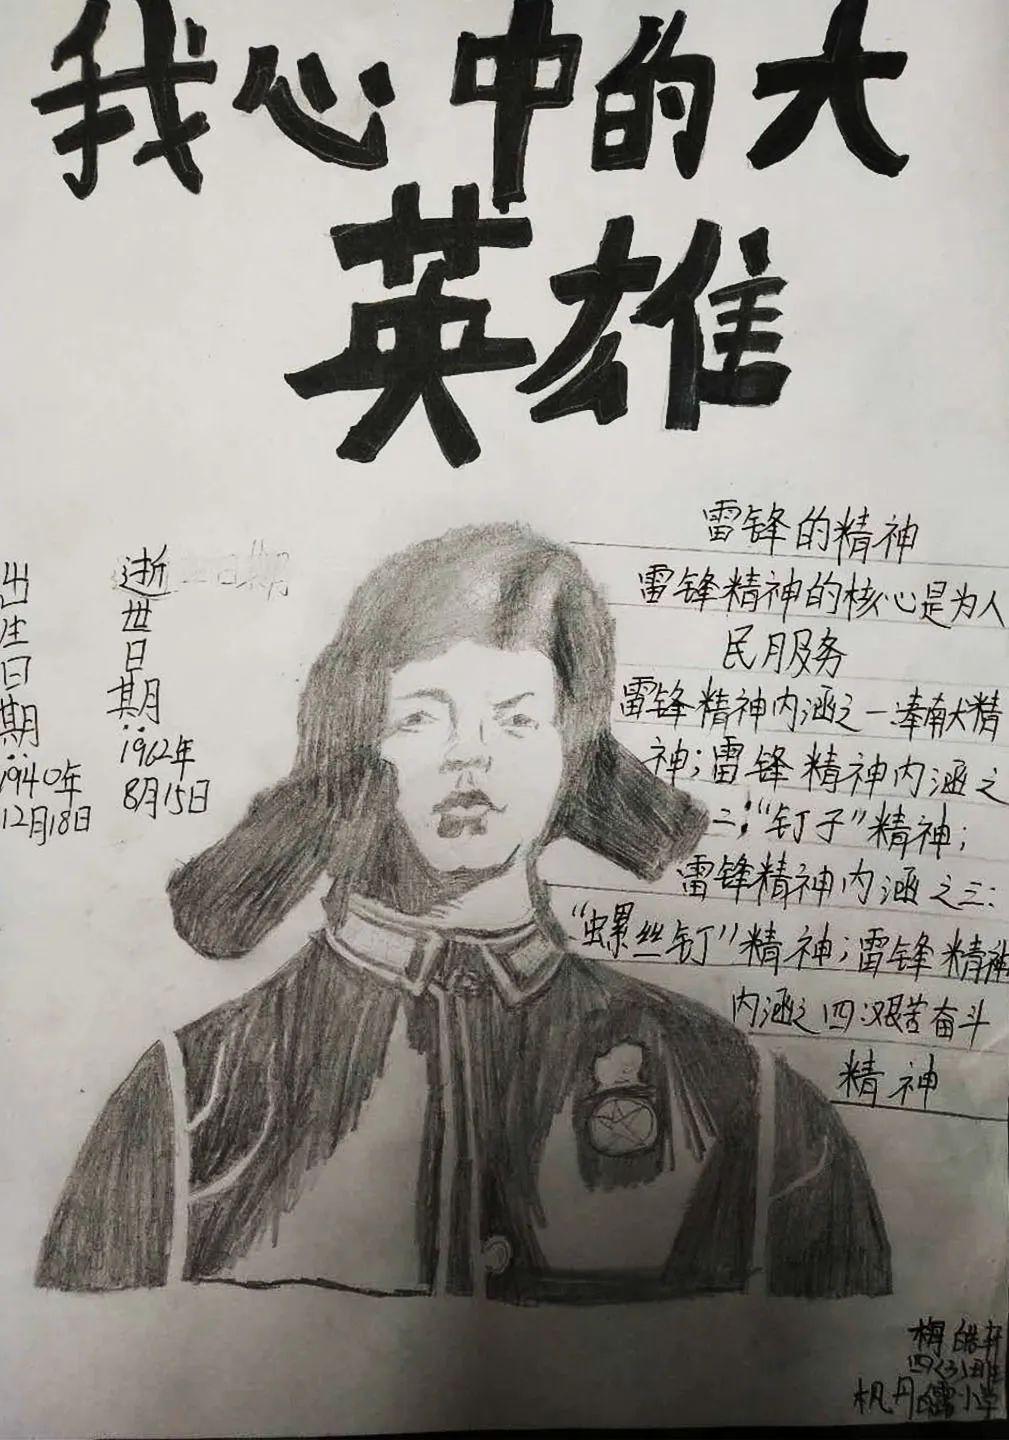 我心中的大
英雄
出生日期:
1940年
12月18日
逝世日期:
1962年
8月15日
雷锋的精神
雷锋精神的核心是为人
民服务
雷锋精神内涵之一:奉献精
神;雷锋精神内涵之
二;“钉子”精神;
雷锋精神内涵之三:
“螺丝钉”精神;雷锋精神
内涵之四:艰苦奋斗
精神
梅皓轩
四(3)班
小学